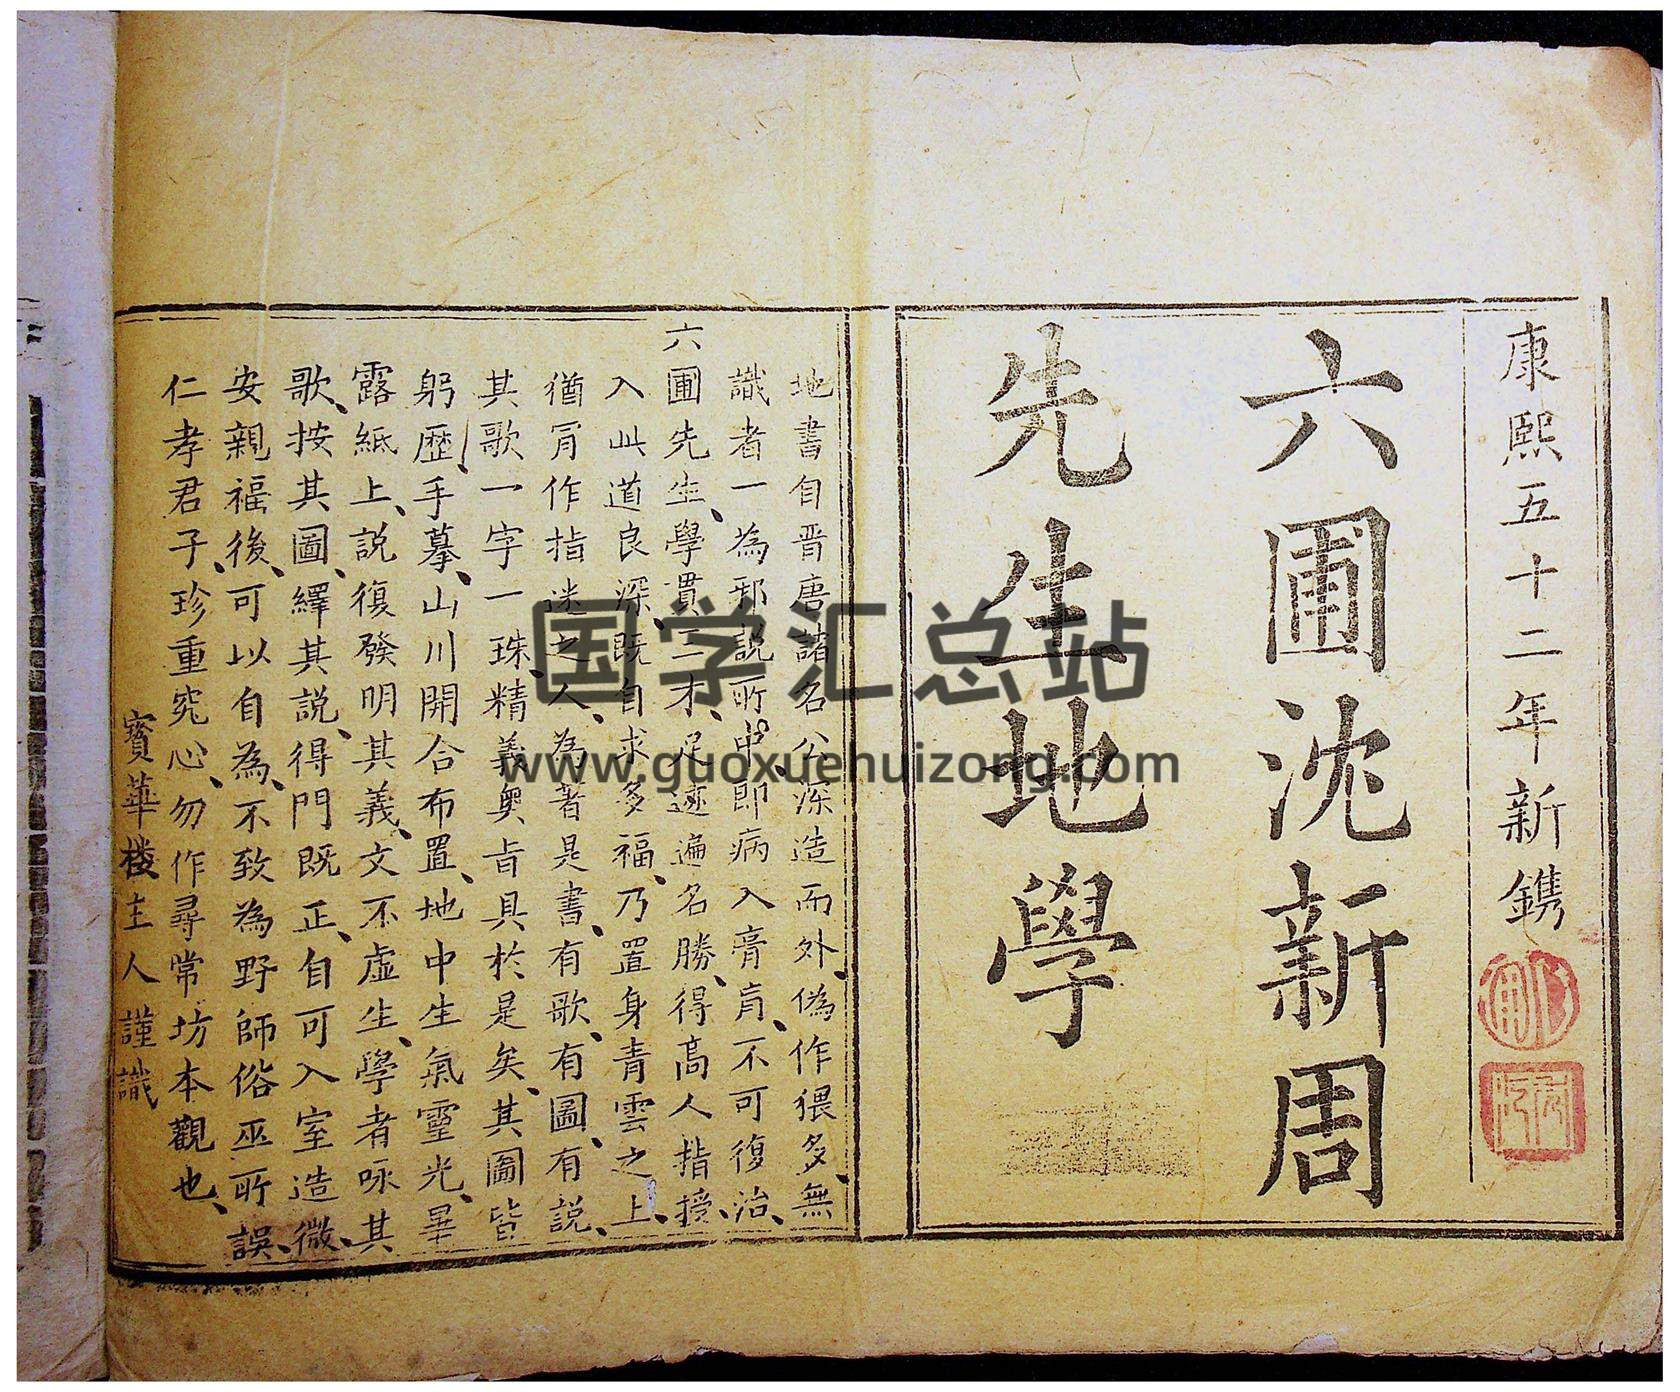 康熙五十二年新鐫
六圃沈新周
先生地學
地書自晋唐諸名公深造而外、偽作猥多、無
識者一為邪說所中、即病入膏肓、不可復治、
六圃先生、學貫三才、足遊遍名勝、得高人指授、
入此道良深、既自求多福、乃置身青雲之上、
猶肎作指迷之人、為著是書、有歌、有圖、有說、
其歌一字一珠、精義奧旨具於是矣、其圖皆
躬歷手摹、山川開合布置、地中生氣靈光、畢
露紙上、說復發明其義、文不虛生、學者咏其
歌、按其圖、繹其說、得門既正、自可入室造微、
安親福後、可以自為、不致為野師俗巫所誤、
仁孝君子、珍重究心、勿作尋常坊本觀也、
寳華楼主人謹識
国学汇总站
www.guoxuehuizong.com